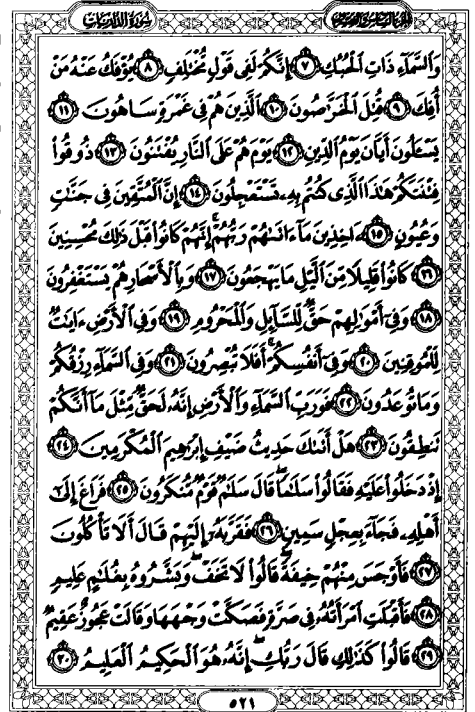 الجزء السادس والعشرون سورة الذاريات
وَالسَّمَآءِ ذَاتِ الْحُبُكِ ٧ إِنَّكُمْ لَفِى قَوْلٍ مُّخْتَلِفٍ ٨ يُؤْفَكُ عَنْهُ مَنْ
أُفِكَ ٩ قُتِلَ الْخَرَّٰصُونَ ١٠ الَّذِينَ هُمْ فِى غَمْرَةٍ سَاهُونَ ١١
يَسْـَٔلُونَ أَيَّانَ يَوْمُ الدِّينِ ١٢ يَوْمَ هُمْ عَلَى النَّارِ يُفْتَنُونَ ١٣ ذُوقُوا۟
فِتْنَتَكُمْ هَٰذَا الَّذِى كُنتُم بِهِۦ تَسْتَعْجِلُونَ ١٤ إِنَّ الْمُتَّقِينَ فِى جَنَّٰتٍ
وَعُيُونٍ ١٥ ءَاخِذِينَ مَآ ءَاتَىٰهُمْ رَبُّهُمْ إِنَّهُمْ كَانُوا۟ قَبْلَ ذَٰلِكَ مُحْسِنِينَ
١٦ كَانُوا۟ قَلِيلًا مِّنَ الَّيْلِ مَا يَهْجَعُونَ ١٧ وَبِالْأَسْحَارِ هُمْ يَسْتَغْفِرُونَ
١٨ وَفِىٓ أَمْوَٰلِهِمْ حَقٌّ لِّلسَّآئِلِ وَالْمَحْرُومِ ١٩ وَفِى الْأَرْضِ ءَايَٰتٌ
لِّلْمُوقِنِينَ ٢٠ وَفِىٓ أَنفُسِكُمْ أَفَلَا تُبْصِرُونَ ٢١ وَفِى السَّمَآءِ رِزْقُكُمْ
وَمَا تُوعَدُونَ ٢٢ فَوَرَبِّ السَّمَآءِ وَالْأَرْضِ إِنَّهُۥ لَحَقٌّ مِّثْلَ مَآ أَنَّكُمْ
تَنطِقُونَ ٢٣ هَلْ أَتَىٰكَ حَدِيثُ ضَيْفِ إِبْرَٰهِيمَ الْمُكْرَمِينَ ٢٤
إِذْ دَخَلُوا۟ عَلَيْهِ فَقَالُوا۟ سَلَٰمًا قَالَ سَلَٰمٌ قَوْمٌ مُّنكَرُونَ ٢٥ فَرَاغَ إِلَىٰٓ
أَهْلِهِۦ فَجَآءَ بِعِجْلٍ سَمِينٍ ٢٦ فَقَرَّبَهُۥٓ إِلَيْهِمْ قَالَ أَلَا تَأْكُلُونَ
٢٧ فَأَوْجَسَ مِنْهُمْ خِيفَةً قَالُوا۟ لَا تَخَفْ وَبَشَّرُوهُ بِغُلَٰمٍ عَلِيمٍ
٢٨ فَأَقْبَلَتِ امْرَأَتُهُۥ فِى صَرَّةٍ فَصَكَّتْ وَجْهَهَا وَقَالَتْ عَجُوزٌ عَقِيمٌ
٢٩ قَالُوا۟ كَذَٰلِكِ قَالَ رَبُّكِ إِنَّهُۥ هُوَ الْحَكِيمُ الْعَلِيمُ ٣٠
٥٢١